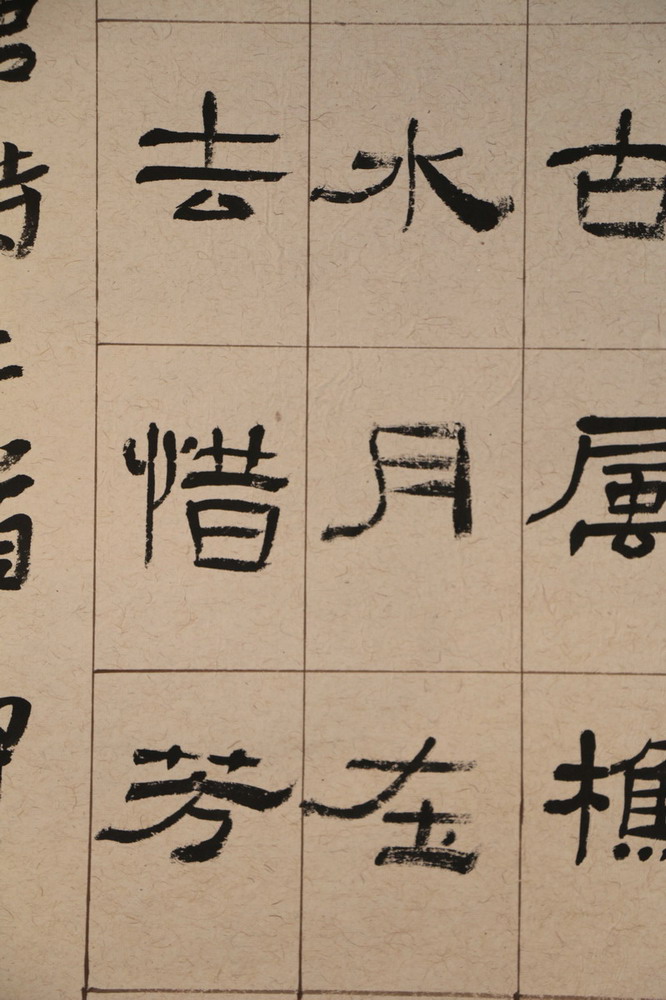 古風樵
水月在
去惜芳